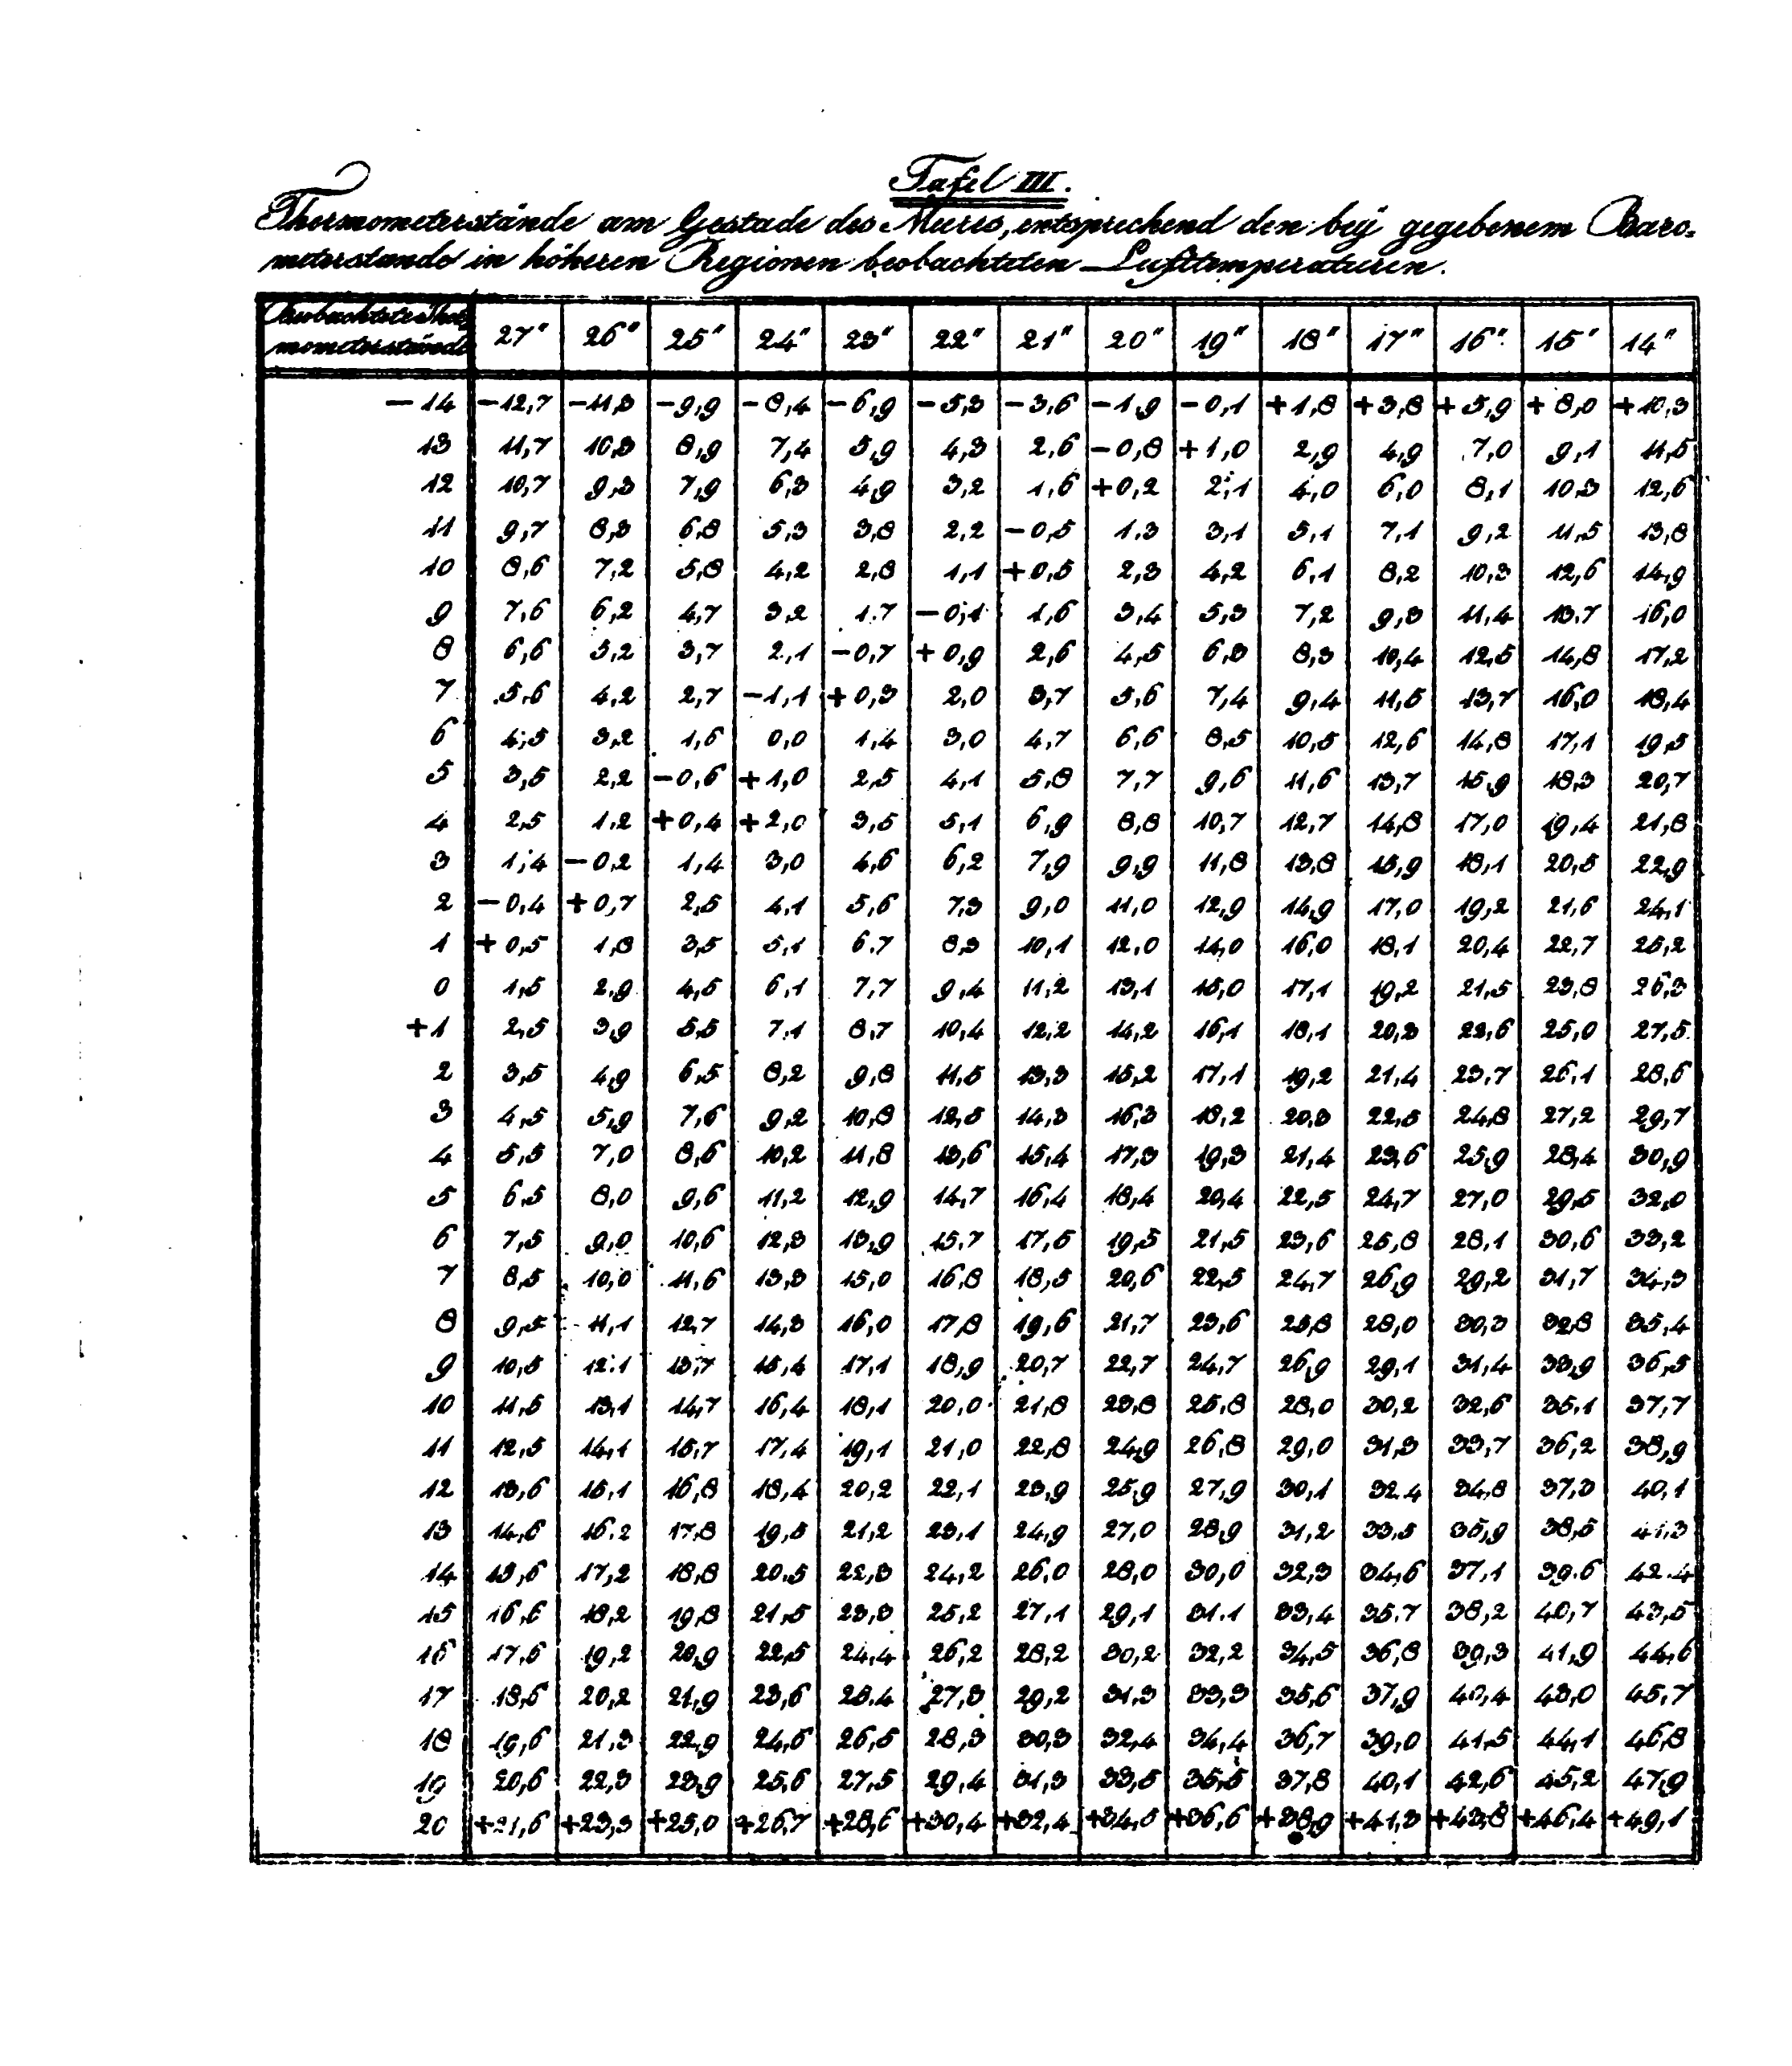 Tafel III.
Thermometerstände am Gestade des Meeres, entsprechend den bey gegebenem Baro-
meterstande in höheren Regionen beobachteten Lufttemperaturen.
Beobachtete Ther-
mometerstände 27" 26" 25" 24" 23" 22" 21" 20" 19" 18" 17" 16" 15" 14"
-14 -12,7 -11,3 -9,9 -8,4 -6,9 -5,3 -3,6 -1,9 -0,1 +1,8 +3,8 +5,9 +8,0 +10,3
13 11,7 10,3 8,9 7,4 5,9 4,3 2,6 -0,8 +1,0 2,9 4,9 7,0 9,1 11,5
12 10,7 9,3 7,9 6,3 4,9 3,2 1,6 +0,2 2,1 4,0 6,0 8,1 10,3 12,6
11 9,7 8,3 6,8 5,3 3,8 2,2 -0,5 1,3 3,1 5,1 7,1 9,2 11,5 13,8
10 8,6 7,2 5,8 4,2 2,8 1,1 +0,5 2,3 4,2 6,1 8,2 10,3 12,6 14,9
9 7,6 6,2 4,7 3,2 1.7 -0,1 1,6 3,4 5,3 7,2 9,3 11,4 13.7 16,0
8 6,6 5,2 3,7 2,1 -0,7 +0,9 2,6 4,5 6,3 8,3 10,4 12,5 14,8 17,2
7 5,6 4,2 2,7 -1,1 +0,3 2,0 3,7 5,6 7,4 9,4 11,5 13,7 16,0 18,4
6 4,5 3,2 1,6 0,0 1,4 3,0 4,7 6,6 8,5 10,5 12,6 14,8 17,1 19,5
5 3,5 2,2 -0,6 +1,0 2,5 4,1 5,8 7,7 9,6 11,6 13,7 15,9 18,3 20,7
4 2,5 1,2 +0,4 +2,0 3,5 5,1 6,9 8,8 10,7 12,7 14,8 17,0 19,4 21,8
3 1,4 -0,2 1,4 3,0 4,6 6,2 7,9 9,9 11,8 13,8 15,9 18,1 20,5 22,9
2 -0,4 +0,7 2,5 4,1 5,6 7,3 9,0 11,0 12,9 14,9 17,0 19,2 21,6 24,1
1 +0,5 1,8 3,5 5,1 6.7 8,3 10,1 12,0 14,0 16,0 18,1 20,4 22,7 25,2
0 1,5 2,9 4,5 6,1 7,7 9,4 11,2 13,1 15,0 17,1 19,2 21,5 23,8 26,3
+1 2,5 3,9 5,5 7,1 8,7 10,4 12,2 14,2 16,1 18,1 20,3 22,6 25,0 27,5
2 3,5 4,9 6,5 8,2 9,8 11,5 13,3 15,2 17,1 19,2 21,4 23,7 26,1 28,6
3 4,5 5,9 7,6 9,2 10,8 12,5 14,3 16,3 18,2 20,3 22,5 24,8 27,2 29,7
4 5,5 7,0 8,6 10,2 11,8 13,6 15,4 17,3 19,3 21,4 23,6 25,9 28,4 30,9
5 6,5 8,0 9,6 11,2 12,9 14,7 16,4 18,4 20,4 22,5 24,7 27,0 29,5 32,0
6 7,5 9,0 10,6 12,3 13,9 15.7 17,5 19,5 21,5 23,6 25,8 28,1 30,6 33,2
7 8,5 10,0 11,6 13,3 15,0 16,8 18,5 20,6 22,5 24,7 26,9 29,2 31,7 34,3
8 9,5 11,1 12,7 14,3 16,0 17,8 19,6 21,7 23,6 25,8 28,0 30,3 32,8 35,4
9 10,5 12.1 13,7 15,4 17,1 18,9 20,7 22,7 24,7 26,9 29,1 31,4 33,9 36,5
10 11,5 13,1 14,7 16,4 18,1 20,0 21,8 23,8 25,8 28,0 30,2 32,6 35,1 37,7
11 12,5 14,1 15,7 17,4 19,1 21,0 22,8 24,9 26,8 29,0 31,3 33,7 36,2 38,9
12 13,6 15,1 16,8 18,4 20,2 22,1 23,9 25,9 27,9 30,1 32.4 34,8 37,3 40,1
13 14,6 16.2 17,8 19,5 21,2 23,1 24,9 27,0 28,9 31,2 33,5 35,9 38,5 41,3
14 15,6 17,2 18,8 20.5 22,3 24,2 26,0 28,0 30,0 32,3 34,6 37,1 39.6 42.4
15 16,6 18,2 19,8 21,5 23,3 25,2 27,1 29,1 31.1 33,4 35.7 38,2 40,7 43,5
16 17,6 19,2 20,9 22,5 24,4 26,2 28,2 30,2 32,2 34,5 36,8 39,3 41,9 44,6
17 18,6 20,2 21,9 23,6 25.4 27,3 29,2 31,3 33,3 35,6 37,9 40,4 43,0 45,7
18 19,6 21,3 22,9 24,6 26,5 28,3 30,3 32,4 34,4 36,7 39,0 41,5 44,1 46,8
19 20,6 22,3 23,9 25,6 27,5 29,4 31,3 33,5 35,5 37,8 40,1 42,6 45,2 47,9
20 +21,6 +23,3 +25,0 +26,7 +28,6 +30,4 +32,4 +34,5 +36,6 +38,9 +41,3 +43,8 +46,4 +49,1